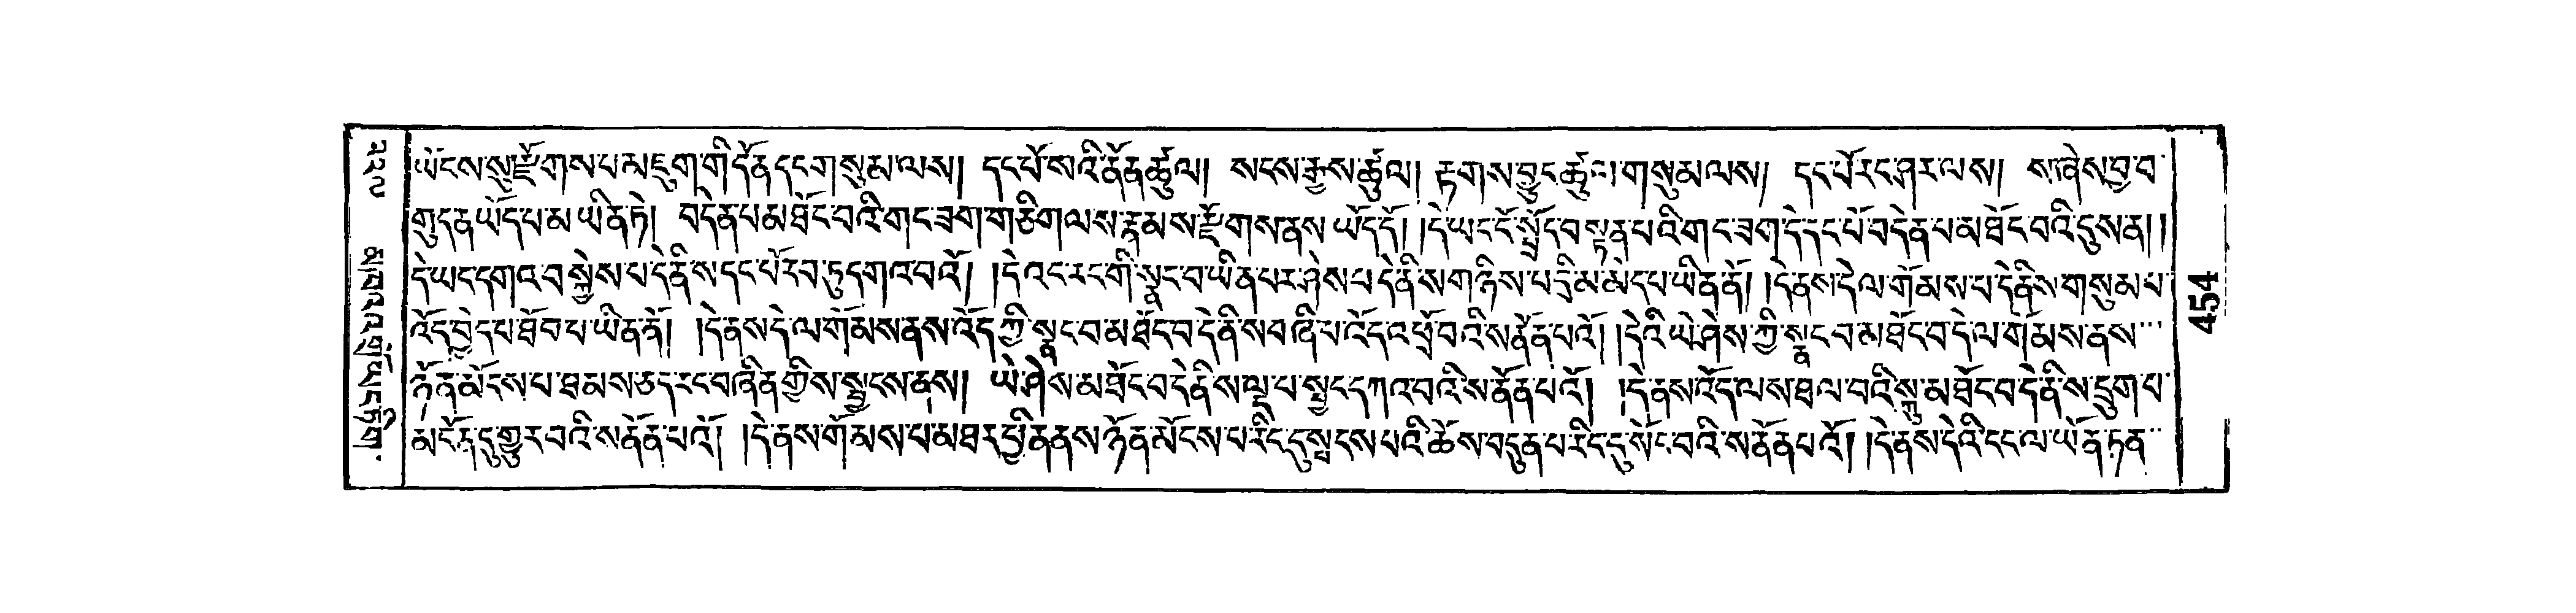 ཡོངས་སུ་རྫོགས་པ་མཇུག་གི་དོན་དང་གསུམ་ལས། དང་པོ་སའི་ནོན་ཚུལ། སངས་རྒྱས་ཚུལ། རྟགས་བྱུང་ཚུལ་གསུམ་ལས། དང་པོ་རང་ཤར་ལས། ས་ཞེས་བྱ་བ་
གུད་ན་ཡོད་པ་མ་ཡིན་ཏེ། བདེན་པ་མཐོང་བའི་གང་ཟག་གཅིག་ལས་རྣམས་རྫོགས་ནས་ཡོད་དོ། །དེ་ཡང་ངོ་སྤྲོད་བསྟན་པའི་གང་ཟག་དེ་དང་པོ་བདེན་པ་མཐོང་བའི་དུས་ན། །
དེ་ཡང་དགའ་བ་སྐྱེས་པ་དེ་ནི་ས་དང་པོ་རབ་ཏུ་དགའ་བའོ། །དེ་འང་རང་གི་སྣང་བ་ཡིན་པར་ཤེས་པ་དེ་ནི་ས་གཉིས་པ་དྲི་མ་མེད་པ་ཡིན་ནོ། །དེ་ནས་དེ་ལ་གོམས་པ་དེ་ནི་ས་གསུམ་པ་
འོད་བྱེད་པ་ཐོབ་པ་ཡིན་ནོ། །དེ་ནས་དེ་ལ་གོམས་ནས་འོད་ཀྱི་སྣང་བ་མཐོང་བ་དེ་ནི་ས་བཞི་པ་འོད་འཕྲོ་བའི་ས་ནོན་པའོ། །དེའི་ཡེ་ཤེས་ཀྱི་སྣང་བ་མཐོང་བ་དེ་ལ་གོམས་ནས་
ཉོན་མོངས་པ་ཐམས་ཅད་རང་བཞིན་གྱིས་སྦྱངས་ནས། ཡེ་ཤེས་མཐོང་བ་དེ་ནི་ས་ལྔ་པ་སྦྱང་དཀའ་བའི་ས་ནོན་པའོ། །དེ་ནས་འོད་ལས་ཐལ་བའི་སྐུ་མཐོང་བ་དེ་ནི་ས་དྲུག་པ་
མངོན་དུ་གྱུར་བའི་ས་ནོན་པའོ། །དེ་ནས་གོམས་པ་མཐར་ཕྱིན་ནས་ཉོན་མོངས་པ་རིང་དུ་སྤངས་པའི་ཆོས་བདུན་པ་རིང་དུ་སོང་བའི་ས་ནོན་པའོ། །དེ་ནས་དེའི་ངང་ལ་ཡོན་ཏན་